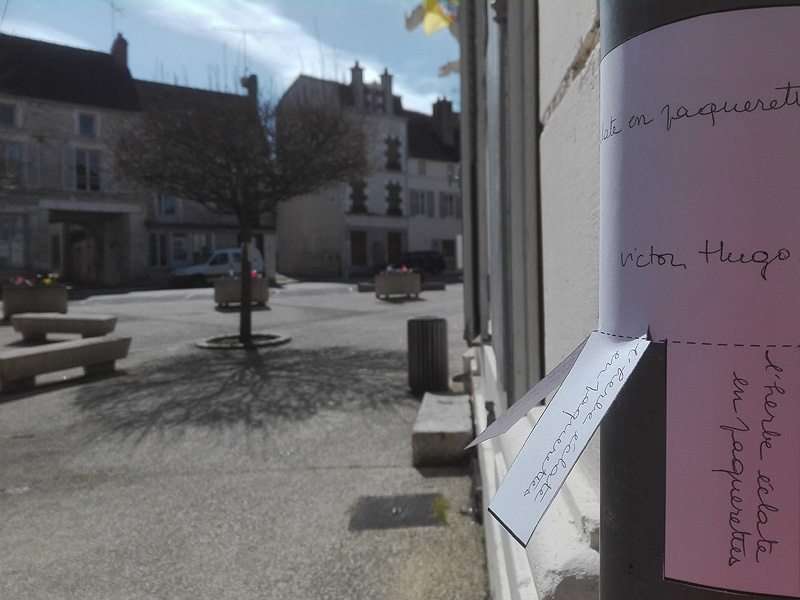 late en paquerett
Victor Hugo
l'herbe éclate
en paquerettes
l'herbe éclate
en paquerettes